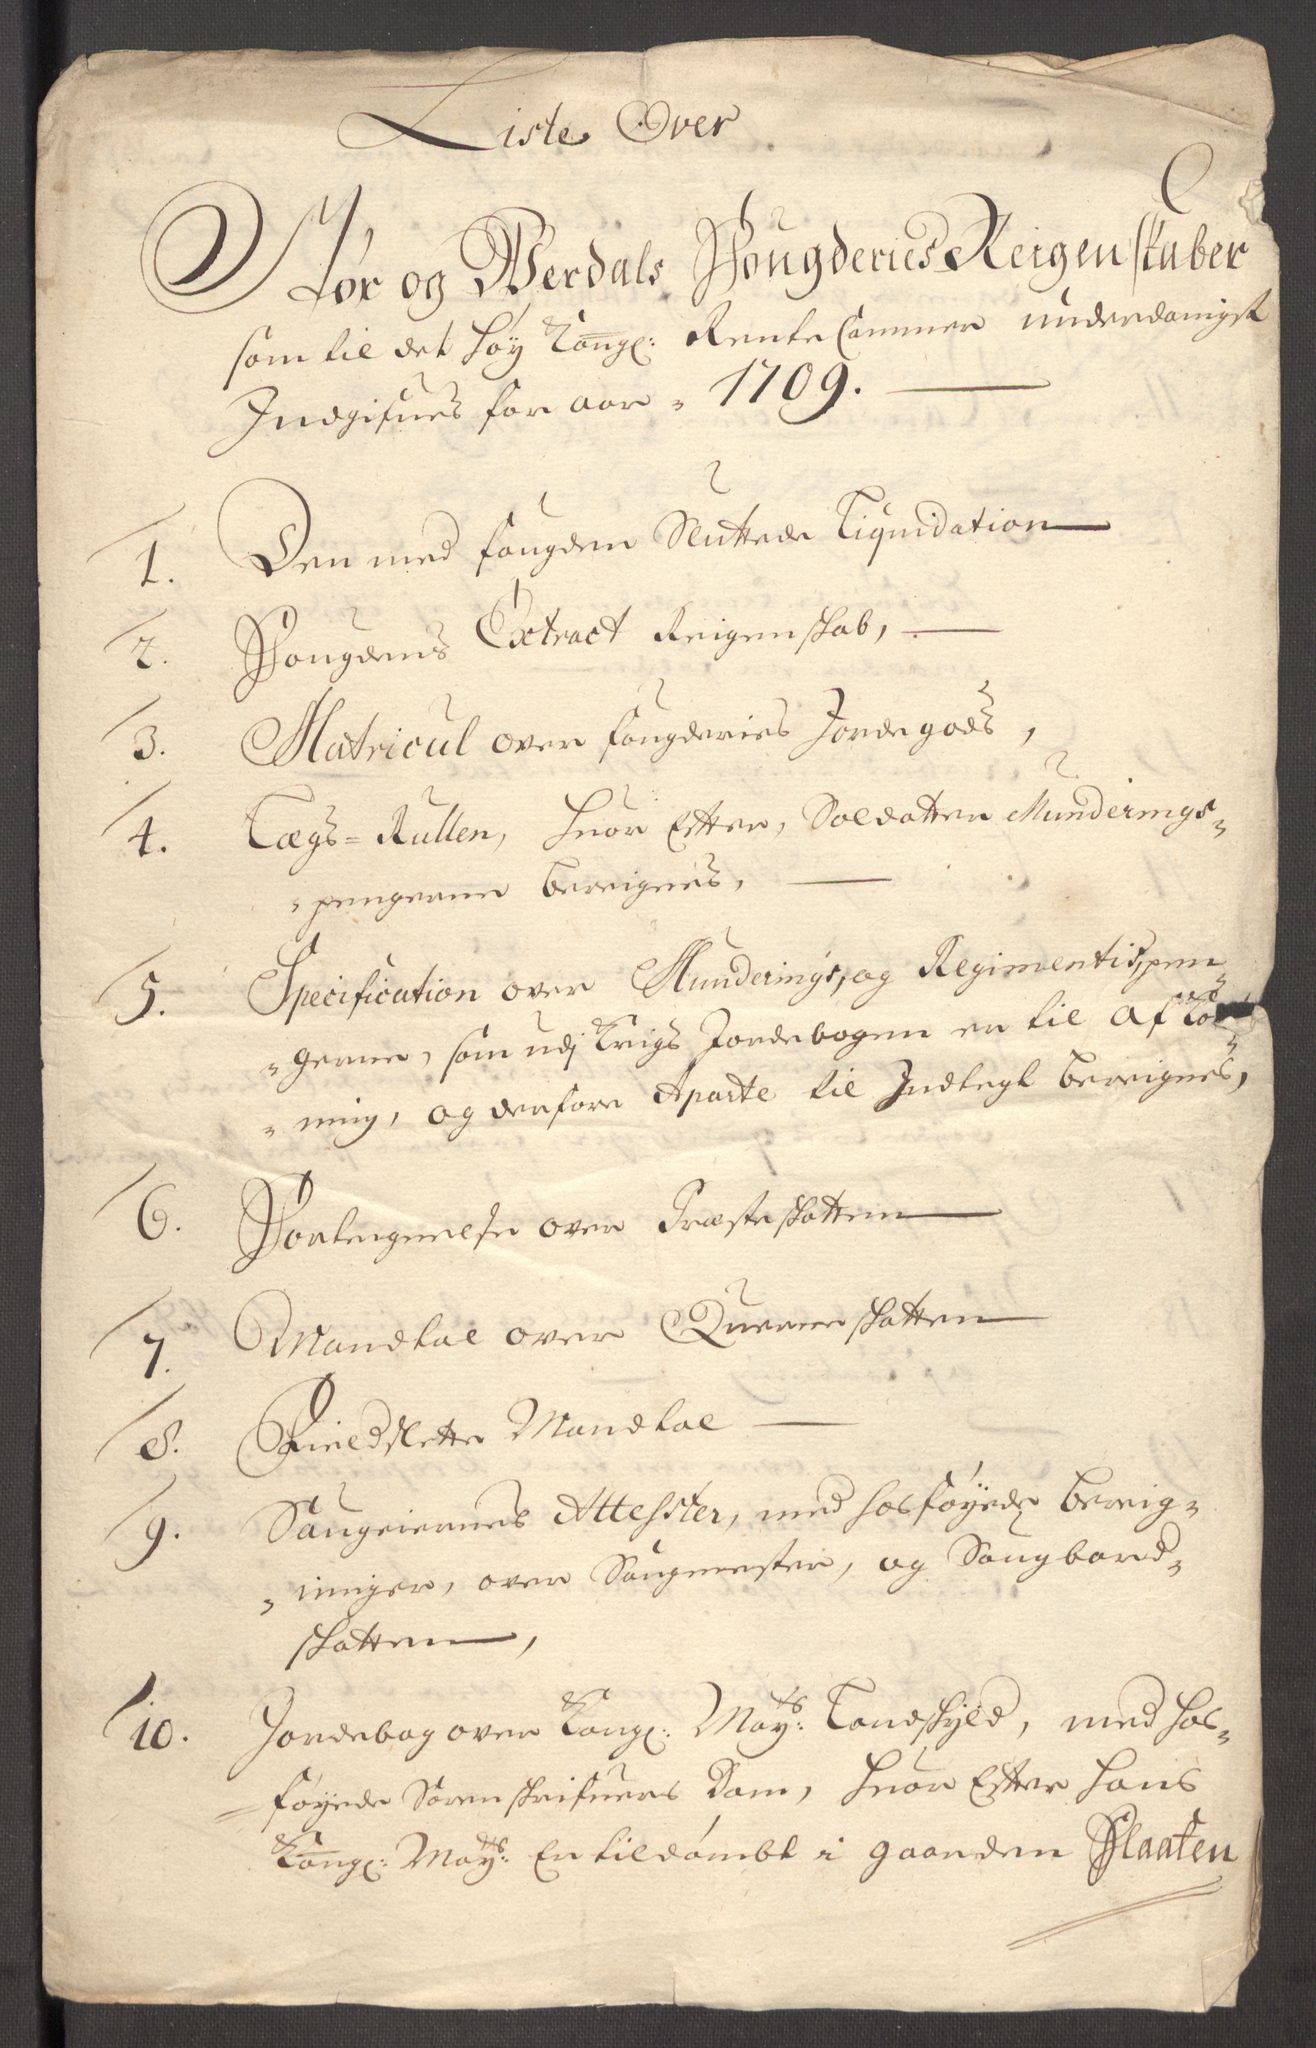 Liste Over
Stør og Werdals Fougderies Reigenskaber
som til det høy Kongl: Rente Cammer underdanigst
Indgifues for aar 1709.
1. Den med fougden Sluttede Liquidation
2. Fougdens Extract Reigenskab,
3. Matricul over fougderies Jordegods,
4. Lægs-Rullen, huor Efter, Soldatter Munderings-
pengerne bereignes,
5. Specification over Munderings, og Regimentispen-
gerne, som udj Krigs Jordebogen er til afkor
ning, og derfore Aparte til Indtegt bereignes,
6. Fortegnelse over Præsteskatten
7. Mandtal over Querneskatten
8. Fieldslette Mandtal
9. Saugeiernes Attester, med hosføyede bereig-
ninger, over Saugmester, og Saugbord-
skatten,
10. Jordebog over Kongl: Mayts: Landskyld, med hos-
føyede Sorenskrifuers Dom, huor Efter hans
Kongl: Mayts: Er tildømbt i gaarden Slaaten